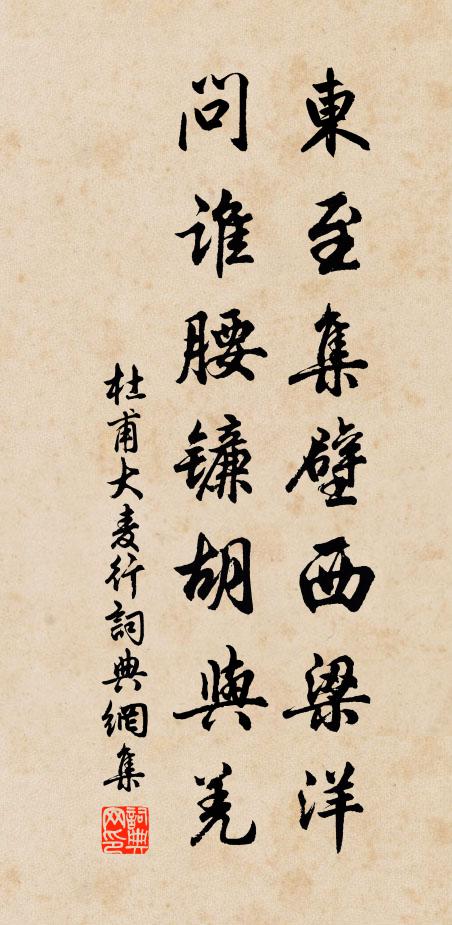 東至集壁西梁洋
問誰腰鐮胡與羌
杜甫大麦行詞典網集
詞典网印